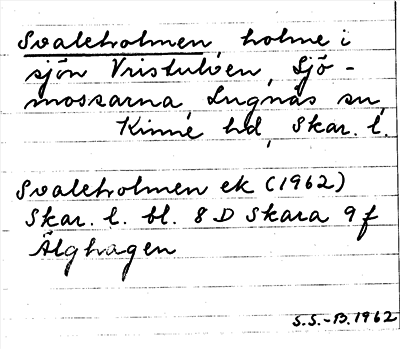 Svaleholmen, holme i
sjön Vristulven, Sjö-
mossarna, Lugnås sn,
Kinne hd, Skar. l.
Svaleholmen ek (1962)
Skar. l. bl. 8 D Skara 9 f
Älghagen
S.S.-B. 1962